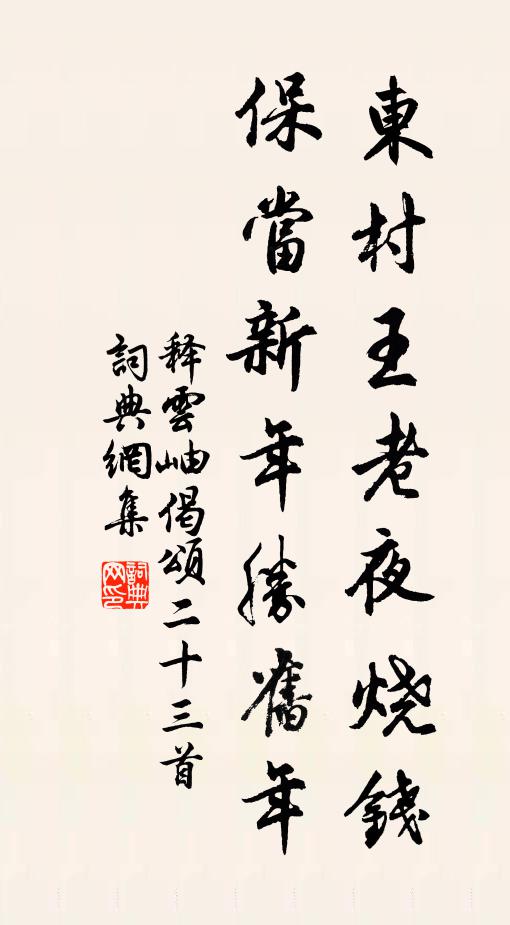 東村王老夜烧錢
保當新年勝舊年
释雲岫偈頌二十三首
詞典網集
詞典网印